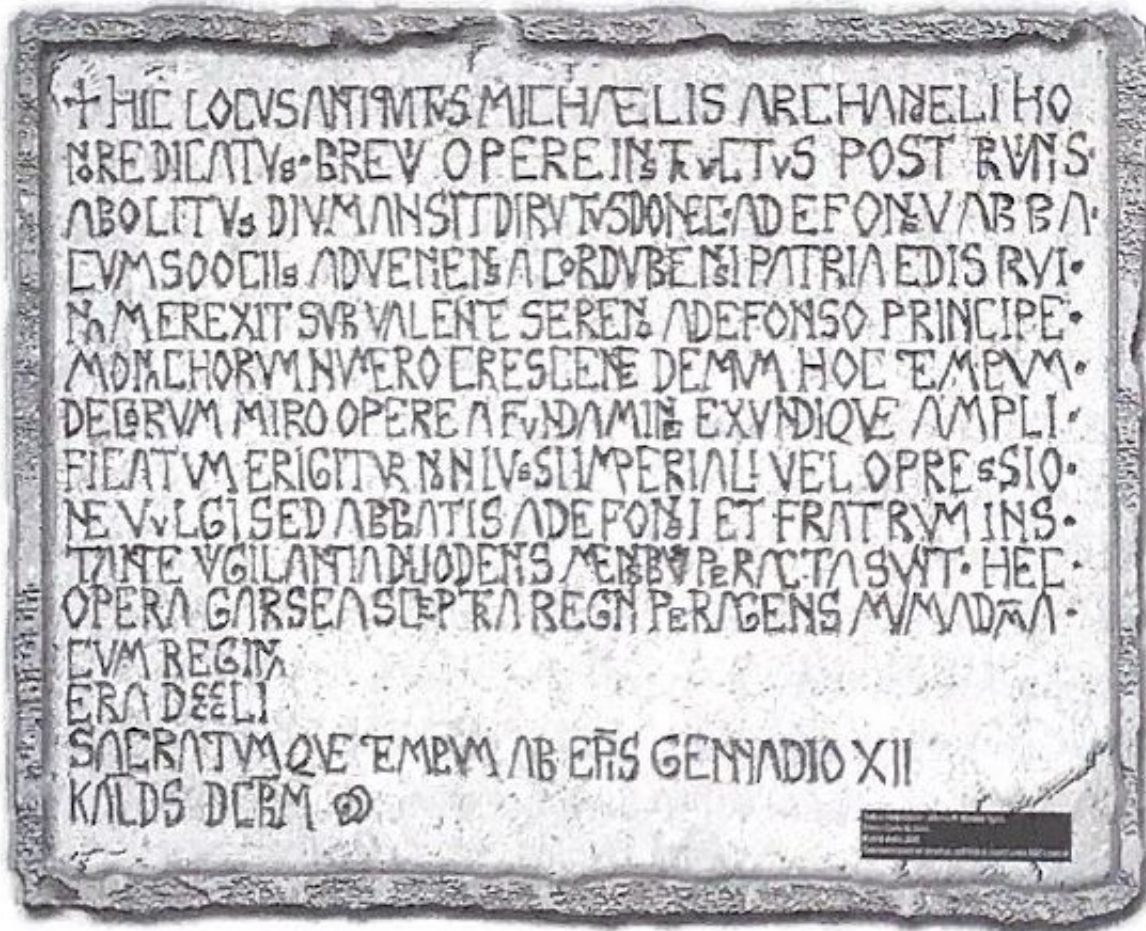 + HIC LOCVS ANTIQVITVS MICHAELIS ARCHANGELI HO
NORE DICATVS• BREVI OPERE INSTRVCTVS POST RVINIS•
ABOLITVS DIV MANSIT DIRVTVS DONEC• ADEFONSVS ABBA•
CVM SOOCIIS ADVENIENS A CORDVBENSI PATRIA EDIS RVI•
NAM EREXIT SVB VALENTE SERENO ADEFONSO PRINCIPE•
MONACHORVM NVMERO CRESCENTE DEMVM HOC TEMPLVM•
DECORVM MIRO OPERE A FVNDAMINE EXVNDIQVE AMPLI•
FICATVM ERIGITVR NON IVSSV IMPERIALI VEL OPRESSIO•
NE VVLGI SED ABBATIS ADEFONSI ET FRATRVM INS•
TANTE VIGILANTIA DUODENIS MENSIBVS PERACTA SVNT• HEC•
OPERA GARSEA SCEPTRA REGNI PERAGENS MVMADŌNA•
CVM REGINA
ERA DCCCCLI
SACRATVMQVE TEMPLVM AB EP̄S GENNADIO XII
KALDS DCBRM